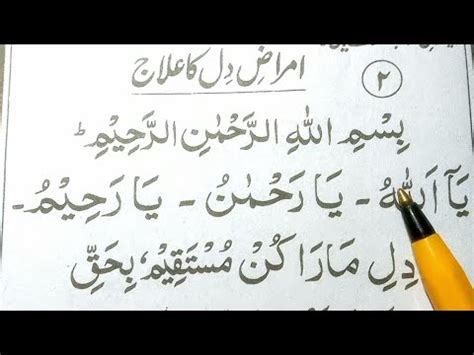 امراضِ دِل کا علاج
۲
بِسْمِ اللهِ الرَّحْمٰنِ الرَّحِيْمِ ط
يَآ اَللهُ ۔ يَا رَحْمٰنُ ۔ يَا رَحِيْمُ ۔
دِلِ مَارَا كُنْ مُسْتَقِيْمْ، بِحَقِّ